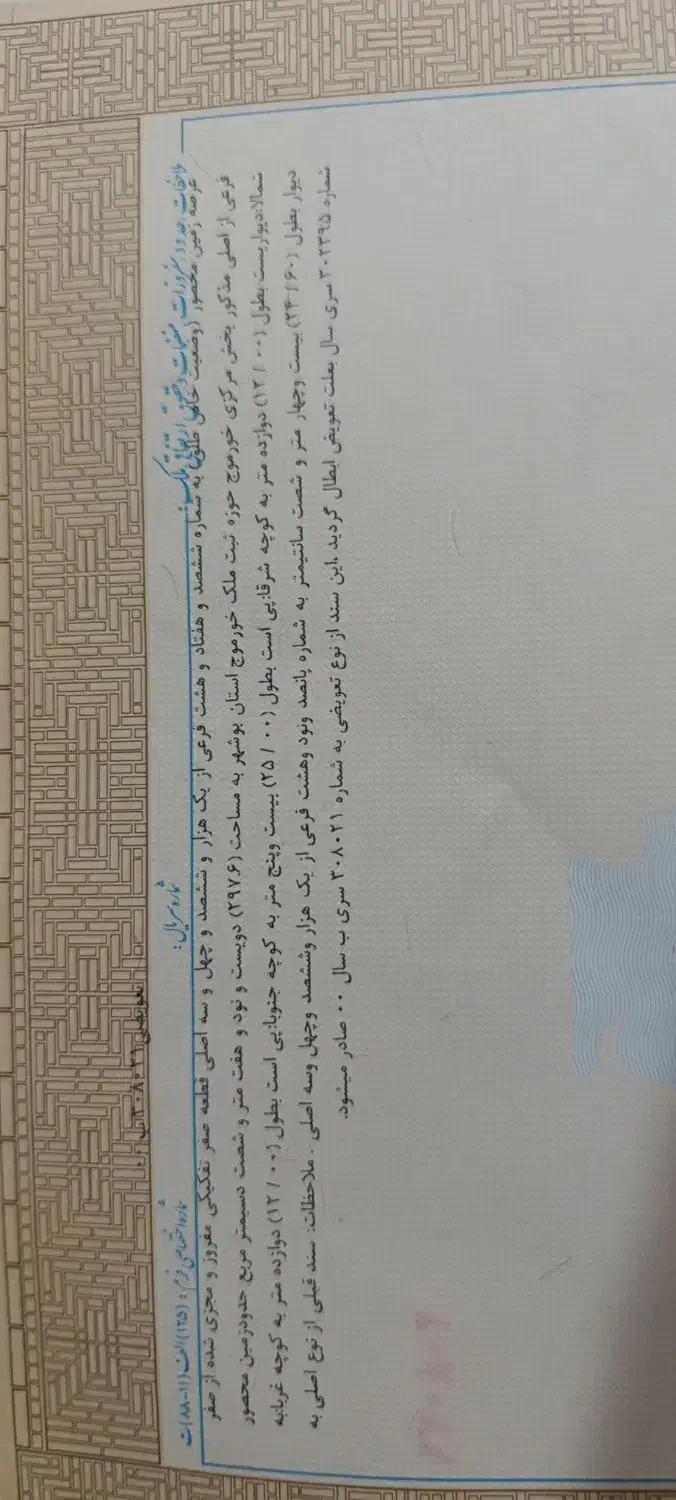 شماره اختصاصی فرم: (۱۲۵) الف (۱۱-۸۸) ت
شماره سریال:
تعویضی ۳۰۸۰۲۱ ب ۰۰
ملاحظات، حدود، مفروزات، منضمات و حقوق ارتفاقی ملک:
عرصه زمین محصور (وضعیت خاص طلق) به شماره ششصد و هفتاد و هشت فرعی از یک هزار و ششصد و چهل و سه اصلی قطعه صفر تفکیکی مفروز و مجزی شده از صفر
فرعی از اصلی مذکور بخش مرکزی خورموج حوزه ثبت ملک خورموج استان بوشهر به مساحت (۲۹۷.۶) دویست و نود و هفت متر و شصت دسیمتر مربع حدودزمین محصور
شمالا:دیواریست بطول (۰۰ / ۱۲) دوازده متر به کوچه شرقا:پی است بطول (۰۰ / ۲۵) بیست وپنج متر به کوچه جنوبا:پی است بطول (۰۰ / ۱۲) دوازده متر به کوچه غربا:به
دیوار بطول (۶۰ / ۲۴) بیست وچهار متر و شصت سانتیمتر به شماره پانصد ونود وهشت فرعی از یک هزار وششصد وچهل وسه اصلی . ملاحظات: سند قبلی از نوع اصلی به
شماره ۳۰۲۳۹۵ سری سال بعلت تعویض ابطال گردید .این سند از نوع تعویضی به شماره ۳۰۸۰۲۱ سری ب سال ۰۰ صادر میشود.